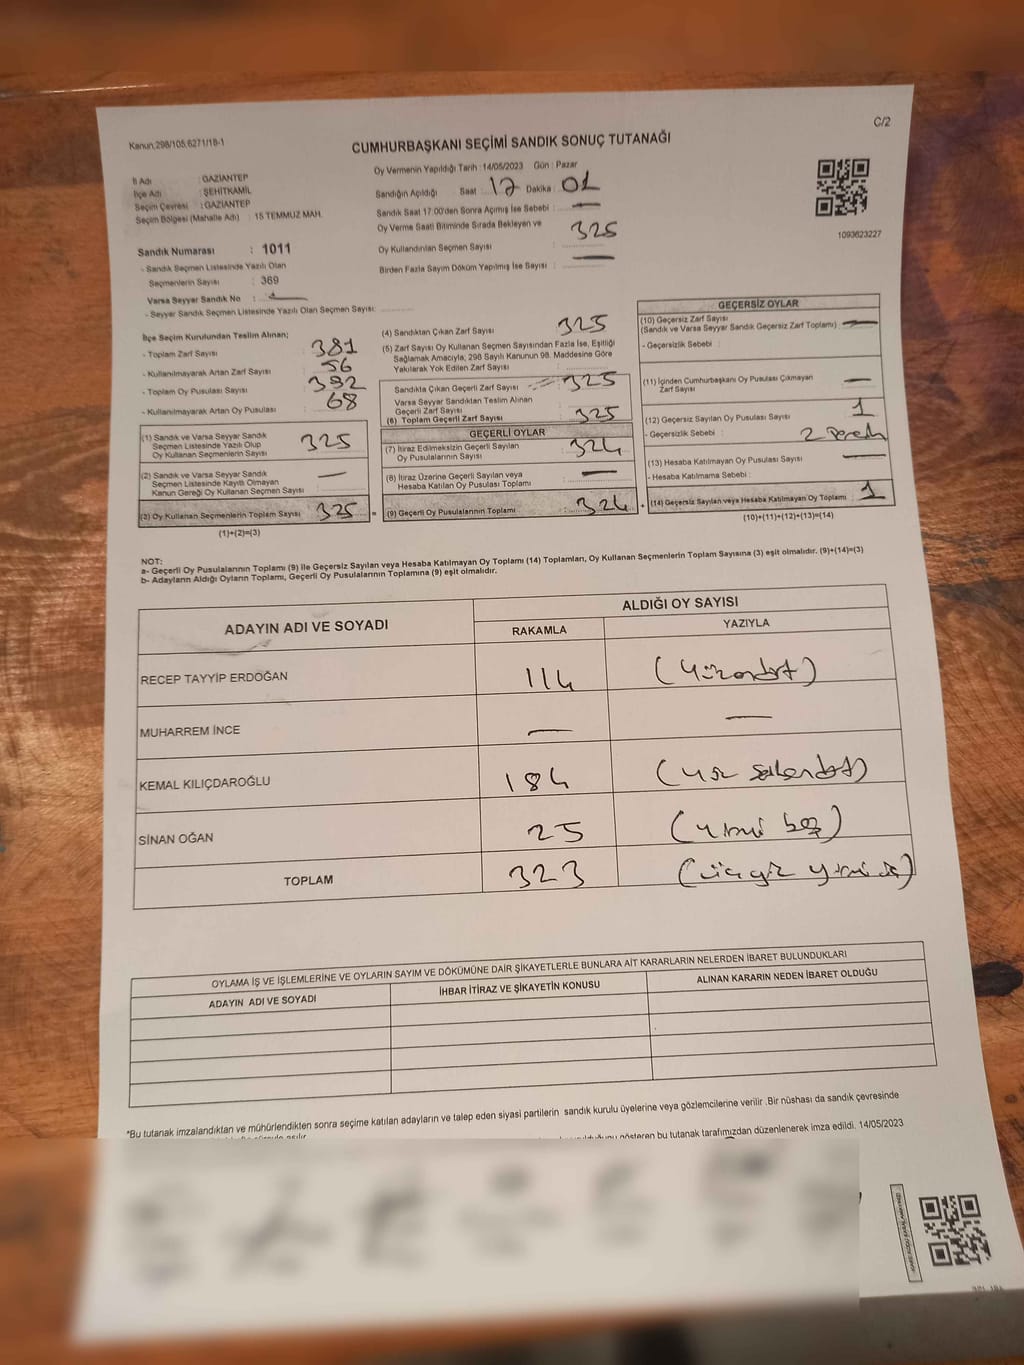 C/2
Kanun,298/105,6271/18-1
CUMHURBAŞKANI SEÇİMİ SANDIK SONUÇ TUTANAĞI
İl Adı : GAZİANTEP
İlçe Adı : ŞEHİTKAMİL
Seçim Çevresi : GAZİANTEP
Seçim Bölgesi (Mahalle Adı) : 15 TEMMUZ MAH.
Oy Vermenin Yapıldığı Tarih :14/05/2023 Gün : Pazar
Sandığın Açıldığı Saat 17 Dakika 01
Sandık Saat 17.00'den Sonra Açımış İse Sebebi : —
Oy Verme Saati Bitiminde Sırada Bekleyen ve
Oy Kullandırılan Seçmen Sayısı 325
Birden Fazla Sayım Döküm Yapılmış İse Sayısı : —
1093623227
Sandık Numarası : 1011
- Sandık Seçmen Listesinde Yazılı Olan
Seçmenlerin Sayısı : 369
Varsa Seyyar Sandık No : —
- Seyyar Sandık Seçmen Listesinde Yazılı Olan Seçmen Sayısı:
İlçe Seçim Kurulundan Teslim Alınan;
- Toplam Zarf Sayısı 381
- Kullanılmayarak Artan Zarf Sayısı 56
- Toplam Oy Pusulası Sayısı 392
- Kullanılmayarak Artan Oy Pusulası 68
(1) Sandık ve Varsa Seyyar Sandık
Seçmen Listesinde Yazılı Olup
Oy Kullanan Seçmenlerin Sayısı 325
(2) Sandık ve Varsa Seyyar Sandık
Seçmen Listesinde Kayıtlı Olmayan
Kanun Gereği Oy Kullanan Seçmen Sayısı —
(3) Oy Kullanan Seçmenlerin Toplam Sayısı 325 =
(1)+(2)=(3)
(4) Sandıktan Çıkan Zarf Sayısı 325
(5) Zarf Sayısı Oy Kullanan Seçmen Sayısından Fazla İse, Eşitliği
Sağlamak Amacıyla; 298 Sayılı Kanunun 98. Maddesine Göre
Yakılarak Yok Edilen Zarf Sayısı :
Sandıkta Çıkan Geçerli Zarf Sayısı 325
Varsa Seyyar Sandıktan Teslim Alınan
Geçerli Zarf Sayısı
(6) Toplam Geçerli Zarf Sayısı 325
GEÇERLİ OYLAR
(7) İtiraz Edilmeksizin Geçerli Sayılan
Oy Pusulalarının Sayısı 324
(8) İtiraz Üzerine Geçerli Sayılan veya
Hesaba Katılan Oy Pusulası Toplamı —
(9) Geçerli Oy Pusulalarının Toplamı : 324 +
GEÇERSİZ OYLAR
(10) Geçersiz Zarf Sayısı
(Sandık ve Varsa Seyyar Sandık Geçersiz Zarf Toplamı) : —
- Geçersizlik Sebebi :
(11) İçinden Cumhurbaşkanı Oy Pusulası Çıkmayan
Zarf Sayısı —
(12) Geçersiz Sayılan Oy Pusulası Sayısı 1
- Geçersizlik Sebebi : 2
(13) Hesaba Katılmayan Oy Pusulası Sayısı —
- Hesaba Katılmama Sebebi :
(14) Geçersiz Sayılan veya Hesaba Katılmayan Oy Toplamı : 1
(10)+(11)+(12)+(13)=(14)
NOT:
a- Geçerli Oy Pusulalarının Toplamı (9) ile Geçersiz Sayılan veya Hesaba Katılmayan Oy Toplamı (14) Toplamları, Oy Kullanan Seçmenlerin Toplam Sayısına (3) eşit olmalıdır. (9)+(14)=(3)
b- Adayların Aldığı Oyların Toplamı, Geçerli Oy Pusulalarının Toplamına (9) eşit olmalıdır.
ADAYIN ADI VE SOYADI
ALDIĞI OY SAYISI
RAKAMLA YAZIYLA
RECEP TAYYİP ERDOĞAN 114 (Yüzondört)
MUHARREM İNCE — —
KEMAL KILIÇDAROĞLU 184 (Yüz seksendört)
SİNAN OĞAN 25 (yirmi beş)
TOPLAM 323 (üçyüz yirmi üç)
OYLAMA İŞ VE İŞLEMLERİNE VE OYLARIN SAYIM VE DÖKÜMÜNE DAİR ŞİKAYETLERLE BUNLARA AİT KARARLARIN NELERDEN İBARET BULUNDUKLARI
ADAYIN ADI VE SOYADI İHBAR İTİRAZ VE ŞİKAYETİN KONUSU ALINAN KARARIN NEDEN İBARET OLDUĞU
*Bu tutanak imzalandıktan ve mühürlendikten sonra seçime katılan adayların ve talep eden siyasi partilerin sandık kurulu üyelerine veya gözlemcilerine verilir .Bir nüshası da sandık çevresinde
gösteren bu tutanak tarafımızdan düzenlenerek imza edildi. 14/05/2023